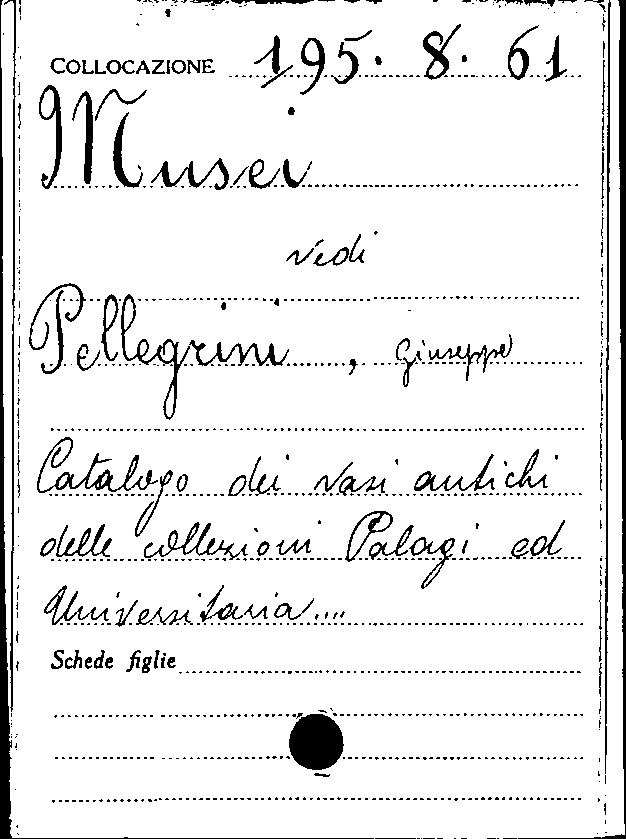 COLLOCAZIONE 195. 8. 61
Musei
vedi
Pellegrini, Giuseppe
Catalogo dei vasi antichi
delle collezioni Palagi ed
Universitaria....
Schede figlie